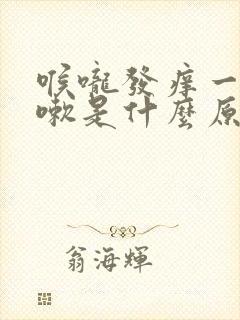 喉嚨發痒一
嗽是什麼原
翁海輝